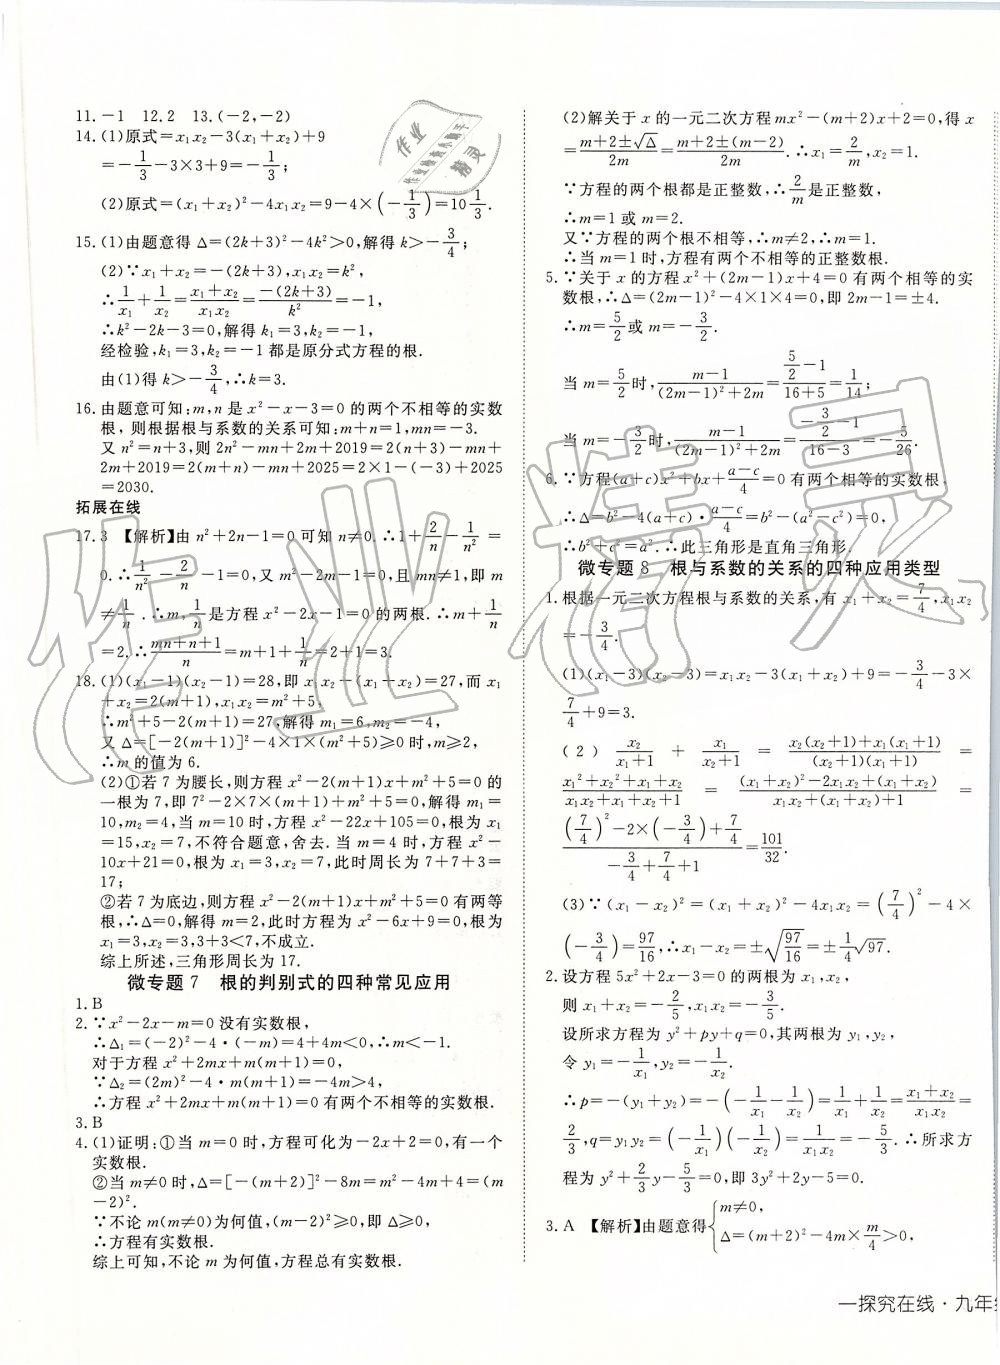 11. －1　12. 2　13. (－2,－2)
14. (1)原式=x₁x₂－3(x₁+x₂)+9
=－1/3－3×3+9=－1/3;
(2)原式=(x₁+x₂)²－4x₁x₂=9－4×(－1/3)=10 1/3.
15. (1)由题意得 Δ=(2k+3)²－4k²>0,解得 k>－3/4;
(2)∵x₁+x₂=－(2k+3),x₁x₂=k²,
∴1/x₁+1/x₂=(x₁+x₂)/(x₁x₂)=－(2k+3)/k²=－1,
∴k²－2k－3=0,解得 k₁=3,k₂=－1,
经检验,k₁=3,k₂=－1 都是原分式方程的根.
由(1)得 k>－3/4,∴k=3.
16. 由题意可知:m,n 是 x²－x－3=0 的两个不相等的实数
根,则根据根与系数的关系可知:m+n=1,mn=－3.
又 n²=n+3,则 2n²－mn+2m+2019=2(n+3)－mn+
2m+2019=2(m+n)－mn+2025=2×1－(－3)+2025
=2030.
拓展在线
17. 3　【解析】由 n²+2n－1=0 可知 n≠0.∴1+2/n－1/n²=
0.∴1/n²－2/n－1=0.又 m²－2m－1=0,且 mn≠1,即 m
≠1/n.∴m,1/n 是方程 x²－2x－1=0 的两根.∴m+1/n
=2.∴(mn+n+1)/n=m+1+1/n=2+1=3.
18. (1)(x₁－1)(x₂－1)=28,即 x₁x₂－(x₁+x₂)=27,而 x₁
+x₂=2(m+1),x₁x₂=m²+5,
∴m²+5－2(m+1)=27,解得 m₁=6,m₂=－4,
又 Δ=[－2(m+1)]²－4×1×(m²+5)≥0 时,m≥2,
∴m 的值为 6.
(2)①若 7 为腰长,则方程 x²－2(m+1)x+m²+5=0 的
一根为 7,即 7²－2×7×(m+1)+m²+5=0,解得 m₁=
10,m₂=4,当 m=10 时,方程 x²－22x+105=0,根为 x₁
=15,x₂=7,不符合题意,舍去.当 m=4 时,方程为 x²－
10x+21=0,根为 x₁=3,x₂=7,此时周长为 7+7+3=
17;
②若 7 为底边,则方程 x²－2(m+1)x+m²+5=0 有两等
根,∴Δ=0,解得 m=2,此时方程为 x²－6x+9=0,根为
x₁=3,x₂=3,3+3<7,不成立.
综上所述,三角形周长为 17.
微专题 7　根的判别式的四种常见应用
1. B
2. ∵x²－2x－m=0 没有实数根,
∴Δ₁=(－2)²－4·(－m)=4+4m<0,∴m<－1.
对于方程 x²+2mx+m(m+1)=0,
∵Δ₂=(2m)²－4·m(m+1)=－4m>4,
∴方程 x²+2mx+m(m+1)=0 有两个不相等的实数根.
3. B
4. (1)证明:①当 m=0 时,方程可化为－2x+2=0,有一个
实数根.
②当 m≠0 时,Δ=[－(m+2)]²－8m=m²－4m+4=(m
－2)².
∵不论 m(m≠0)为何值,(m－2)²≥0,即 Δ≥0,
∴方程有实数根.
综上可知,不论 m 为何值,方程总有实数根.
(2)解关于 x 的一元二次方程 mx²－(m+2)x+2=0,得 x
=(m+2±√Δ)/2m=(m+2±(m－2))/2m.∴x₁=2/m,x₂=1.
∵方程的两个根都是正整数,∴2/m是正整数,
∴m=1 或 m=2.
又∵方程的两个根不相等,∴m≠2,∴m=1.
∴当 m=1 时,方程有两个不相等的正整数根.
5. ∵关于 x 的方程 x²+(2m－1)x+4=0 有两个相等的实
数根,∴Δ=(2m－1)²－4×1×4=0,即 2m－1=±4.
∴m=5/2或 m=－3/2.
当 m=5/2时,(m－1)/((2m－1)²+2m)=(5/2－1)/(16+5)=1/14;
当 m=－3/2时,(m－1)/((2m－1)²+2m)=(－3/2－1)/(16－3)=－5/26.
6. ∵方程(a+c)x²+bx+(a－c)/4=0 有两个相等的实数根,
∴Δ=b²－4(a+c)·(a－c)/4=b²－(a²－c²)=0,
∴b²+c²=a².∴此三角形是直角三角形.
微专题 8　根与系数的关系的四种应用类型
1. 根据一元二次方程根与系数的关系,有 x₁+x₂=7/4,x₁x₂
=－3/4.
(1)(x₁－3)(x₂－3)=x₁x₂－3(x₁+x₂)+9=－3/4－3×
7/4+9=3.
(2) x₂/(x₁+1)+x₁/(x₂+1)=(x₂(x₂+1)+x₁(x₁+1))/((x₂+1)(x₁+1))=
(x₁²+x₂²+x₁+x₂)/(x₁x₂+x₁+x₂+1)=((x₁+x₂)²－2x₁x₂+(x₁+x₂))/(x₁x₂+(x₁+x₂)+1)=
((7/4)²－2×(－3/4)+7/4)/(－3/4+7/4+1)=101/32.
(3)∵(x₁－x₂)²=(x₁+x₂)²－4x₁x₂=(7/4)²－4×
(－3/4)=97/16,∴x₁－x₂=±√(97/16)=±1/4√97.
2. 设方程 5x²+2x－3=0 的两根为 x₁,x₂,
则 x₁+x₂=－2/5,x₁x₂=－3/5.
设所求方程为 y²+py+q=0,其两根为 y₁,y₂,
令 y₁=－1/x₁,y₂=－1/x₂.
∴p=－(y₁+y₂)=－(－1/x₁－1/x₂)=1/x₁+1/x₂=(x₁+x₂)/(x₁x₂)=
2/3,q=y₁y₂=(－1/x₁)(－1/x₂)=1/(x₁x₂)=－5/3.∴所求方
程为 y²+2/3y－5/3=0,即 3y²+2y－5=0.
3. A　【解析】由题意得{m≠0,
Δ=(m+2)²－4m×m/4>0,
一探究在线·九年
作业
作业检查小助手
精灵
作业精灵